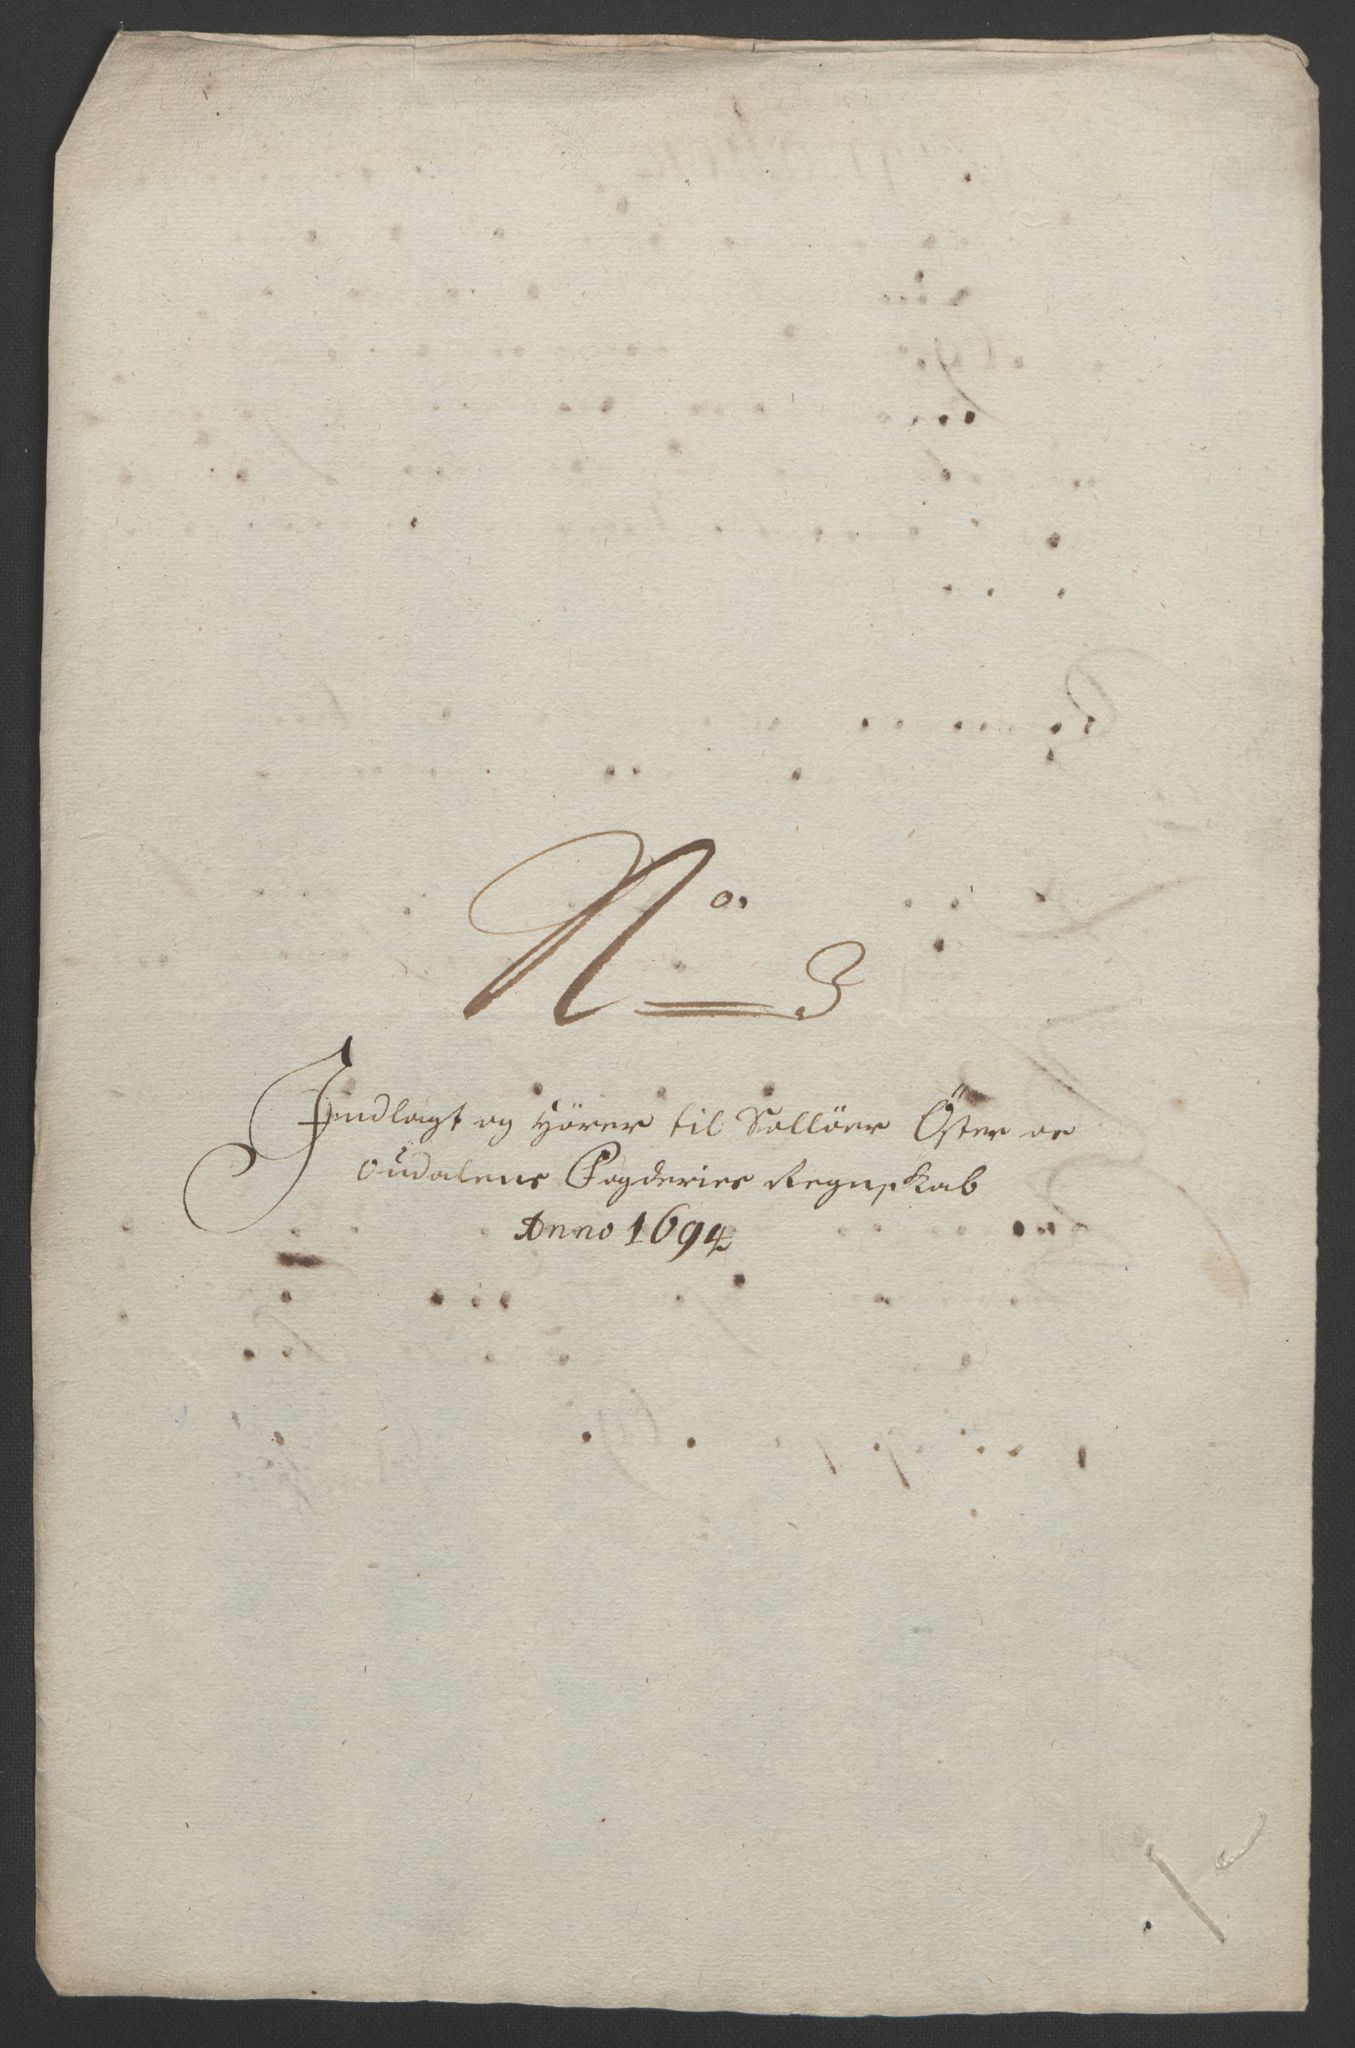 No 3
Indlagt og Hörer til Sollöer Öster oc
oudalens Fogderies Regnskab
Anno 1694